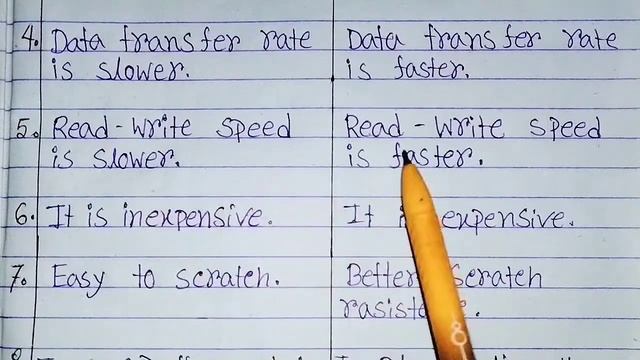 4. Data transfer rate is slower. Data transfer rate is faster.
5. Read-Write speed is slower. Read-Write speed is faster.
6. It is inexpensive. It expensive.
7. Easy to scratch. Better Scratch